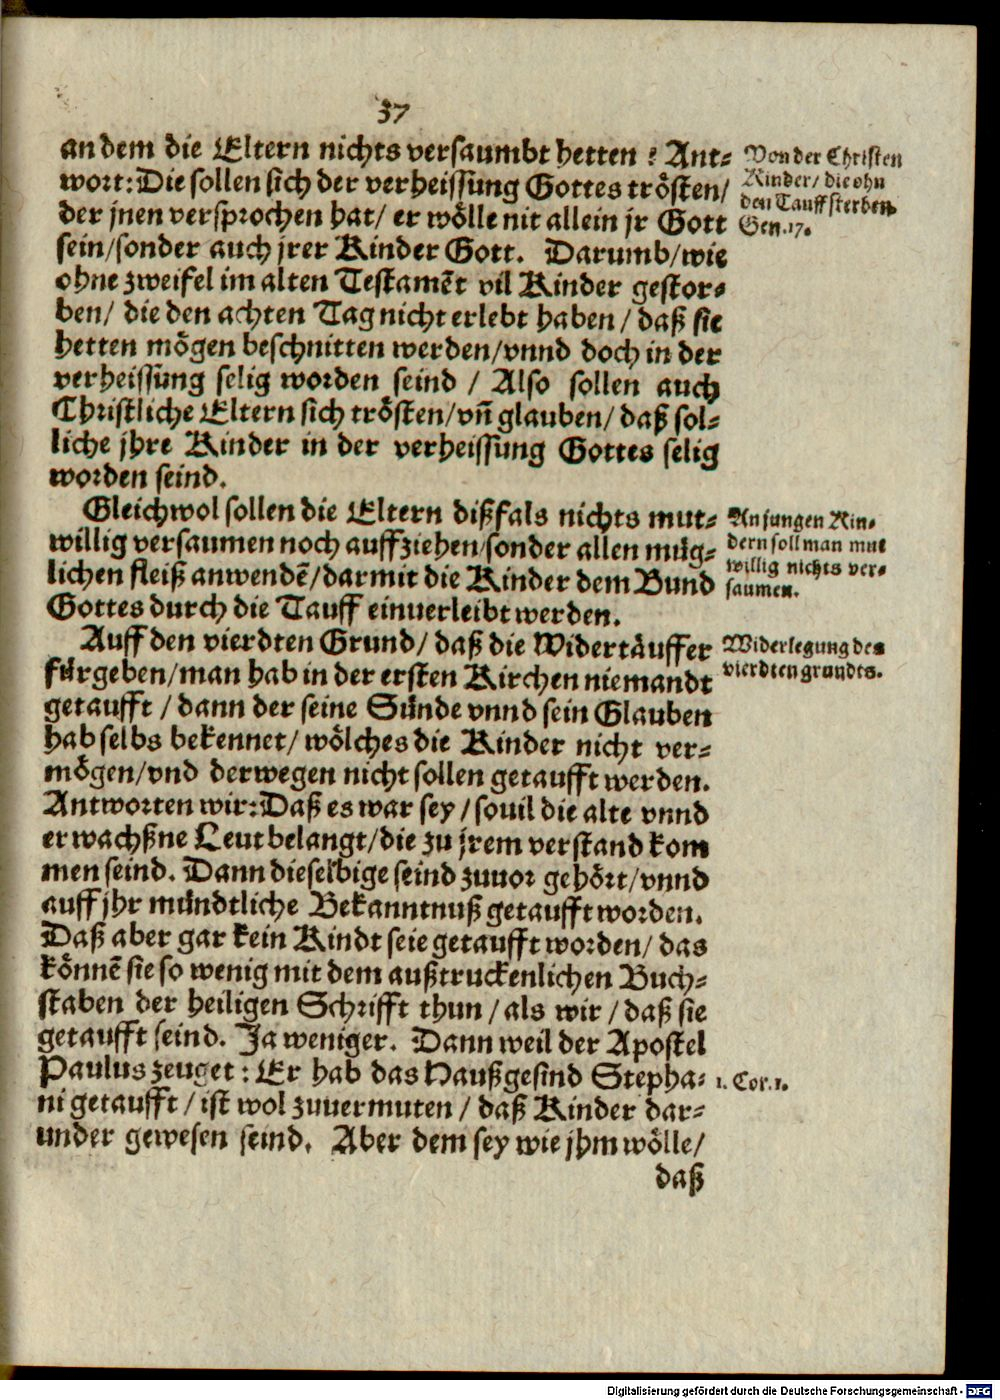 37
an dem die Eltern nichts versaumbt hetten? Ant-
wort: Die sollen sich der verheissung Gottes trösten/
der jnen versprochen hat/ er wölle nit allein jr Gott
sein/ sonder auch jrer Kinder Gott. Darumb/ wie
ohne zweifel im alten Testamēt vil Kinder gestor-
ben/ die den achten Tag nicht erlebt haben/ daß sie
hetten mögen beschnitten werden/ vnnd doch in der
verheissung selig worden seind / Also sollen auch
Christliche Eltern sich trösten/ vn̄ glauben/ daß sol-
liche jhre Kinder in der verheissung Gottes selig
worden seind.
Von der Christen
Kinder/ die ohn
den Tauff sterben.
Gen. 17.
Gleichwol sollen die Eltern dißfals nichts mut-
willig versaumen noch auffziehen/ sonder allen müg-
lichen fleiß anwendē/ darmit die Kinder dem Bund
Gottes durch die Tauff einuerleibt werden.
An jungen Kin-
dern soll man mut
willig nichts ver-
saumen.
Auff den vierdten Grund/ daß die Widertäuffer
fürgeben/ man hab in der ersten Kirchen niemandt
getaufft / dann der seine Sünde vnnd sein Glauben
hab selbs bekennet/ wölches die Kinder nicht ver-
mögen/ vnd derwegen nicht sollen getaufft werden.
Antworten wir: Daß es war sey / souil die alte vnnd
erwachßne Leut belangt/ die zu jrem verstand kom
men seind. Dann dieselbige seind zuuor gehört/ vnnd
auff jhr mündtliche Bekanntnuß getaufft worden.
Daß aber gar kein Kindt seie getaufft worden/ das
könnē sie so wenig mit dem außtruckenlichen Buch-
staben der heiligen Schrifft thun / als wir / daß sie
getaufft seind. Ja weniger. Dann weil der Apostel
Paulus zeuget: Er hab das Haußgesind Stepha-
ni getaufft / ist wol zuuermuten / daß Kinder dar-
under gewesen seind. Aber dem sey wie jhm wölle/
daß
Widerlegung des
vierdten grundts.
1. Cor. 1.
Digitalisierung gefördert durch die Deutsche Forschungsgemeinschaft - DFG